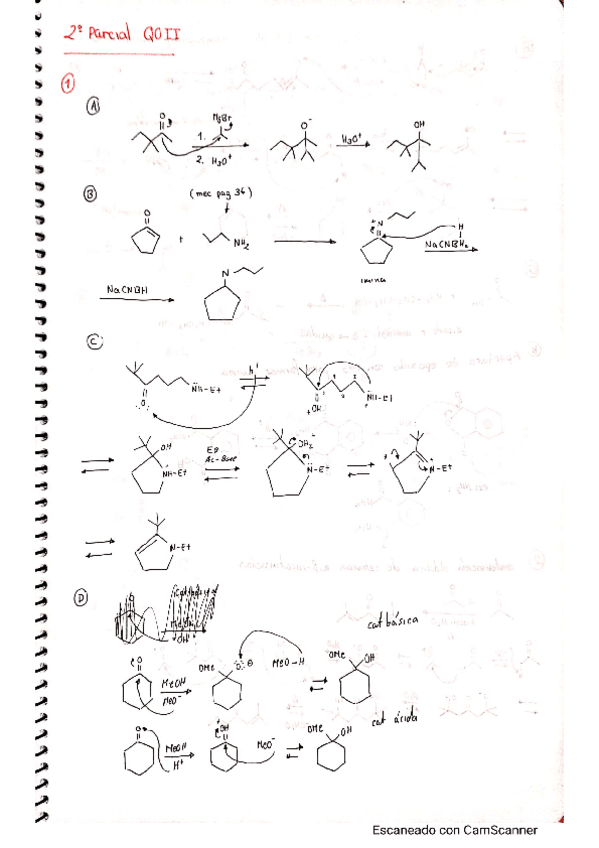 2º Parcial QOII
1
A
O
MgBr
1.
2. H3O+
O-
H3O+
OH
B
(mec pag 36)
O
+
NH2
N
H
NaCNBH3
NaCNBH
N
C
O
NH-Et
h+
OH
NH-Et
OH
NH-Et
Eq
Ac-Base
OH2
N-Et
N-Et
N-Et
D
cat básica
O
MeOH
MeO-
OMe
O
MeO-H
OMe
OH
cat ácida
O
MeOH
H+
OH
MeO-
OMe
OH
Escaneado con CamScanner